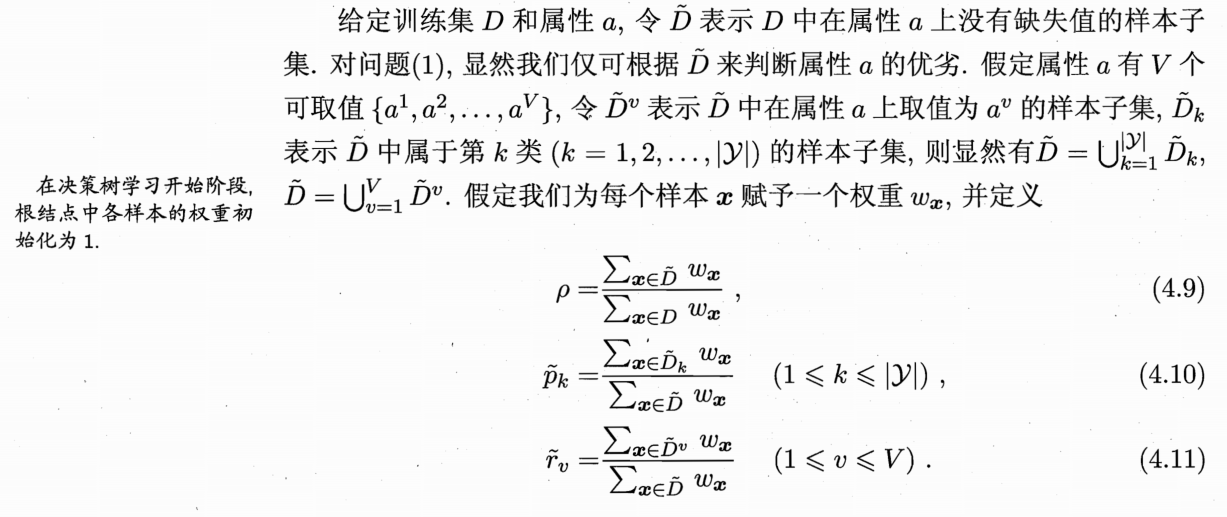 给定训练集 D 和属性 a, 令 D̃ 表示 D 中在属性 a 上没有缺失值的样本子
集. 对问题(1), 显然我们仅可根据 D̃ 来判断属性 a 的优劣. 假定属性 a 有 V 个
可取值 {a¹, a², . . . , a^V}, 令 D̃^v 表示 D̃ 中在属性 a 上取值为 a^v 的样本子集, D̃_k
表示 D̃ 中属于第 k 类 (k = 1, 2, . . . , |𝒴|) 的样本子集, 则显然有 D̃ = ⋃_{k=1}^{|𝒴|} D̃_k,
D̃ = ⋃_{v=1}^{V} D̃^v. 假定我们为每个样本 𝒙 赋予一个权重 w_𝒙, 并定义
在决策树学习开始阶段,
根结点中各样本的权重初
始化为 1.
ρ = \frac{∑_{𝒙∈D̃} w_𝒙}{∑_{𝒙∈D} w_𝒙} , (4.9)
p̃_k = \frac{∑_{𝒙∈D̃_k} w_𝒙}{∑_{𝒙∈D̃} w_𝒙} (1 ⩽ k ⩽ |𝒴|) , (4.10)
r̃_v = \frac{∑_{𝒙∈D̃^v} w_𝒙}{∑_{𝒙∈D̃} w_𝒙} (1 ⩽ v ⩽ V) . (4.11)